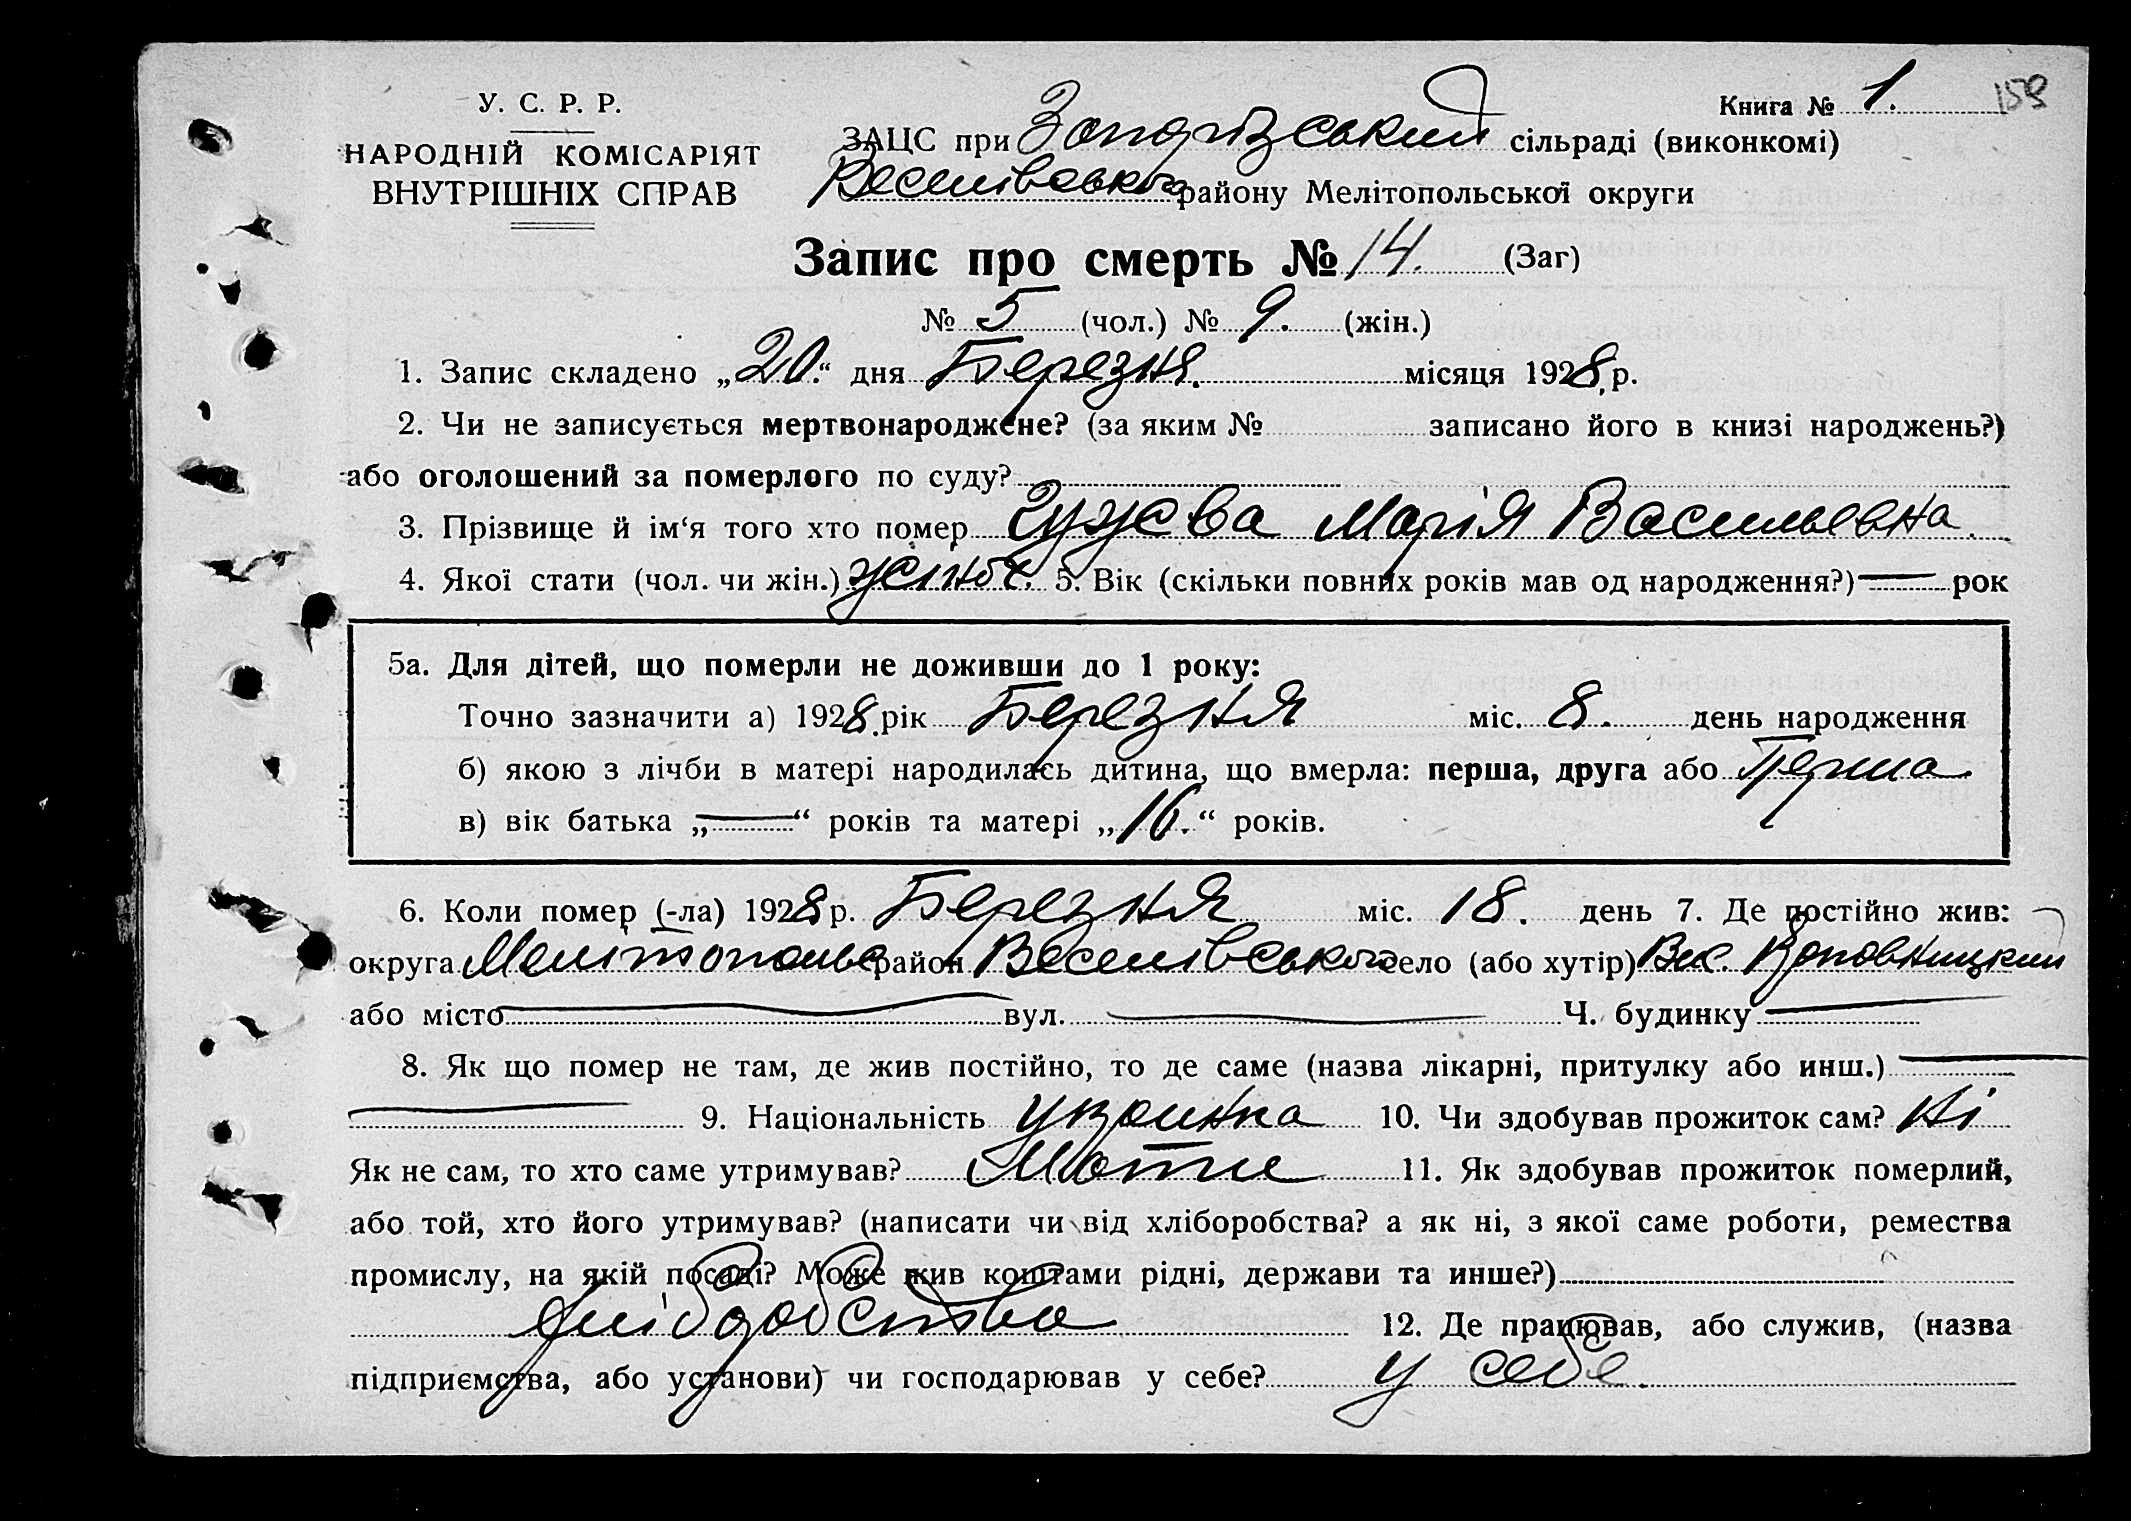 У. С. Р. Р.
НАРОДНІЙ КОМІСАРІЯТ
ВНУТРІШНІХ СПРАВ
Книга № 1. 159
ЗАЦС при сільраді (виконкомі)
Веселівського району Мелітопольської округи
Запис про смерть № 14. (Заг)
№ 5 (чол.) № 9. (жін.)
1. Запис складено „20.“ дня Березня. місяця 1928 р.
2. Чи не записується мертвонароджене? (за яким № записано його в книзі народжень?)
або оголошений за померлого по суду?
3. Прізвище й ім‘я того хто помер Гузєва Марія Васильевна.
4. Якої стати (чол. чи жін.) жіноч. 5. Вік (скільки повних років мав од народження?) — рок
5а. Для дітей, що померли не доживши до 1 року:
Точно зазначити а) 1928 рік Березня міс. 8. день народження
б) якою з лічби в матері народилась дитина, що вмерла: перша, друга або Перша
в) вік батька „—“ років та матері „16.“ років.
6. Коли помер (-ла) 1928 р. Березня міс. 18. день 7. Де постійно жив:
округа Мелітопольс район Веселівського село (або хутір) Вис.
або місто — вул. — Ч. будинку —
8. Як що помер не там, де жив постійно, то де саме (назва лікарні, притулку або инш.) —
— 9. Національність украинка 10. Чи здобував прожиток сам? Ні
Як не сам, то хто саме утримував? Мати 11. Як здобував прожиток померлий,
або той, хто його утримував? (написати чи від хліборобства? а як ні, з якої саме роботи, ремества
промислу, на якій посаді? Може жив коштами рідні, держави та инше?)
хліборобства 12. Де працював, або служив, (назва
підприємства, або установи) чи господарював у себе? у себе.